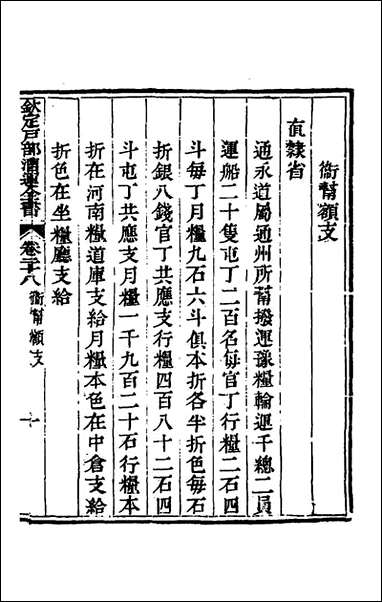 衞幫額支
直隸省
通永道屬通州所幫撥運豫糧輪運千總二員
運船二十隻屯丁二百名每官丁行糧二石四
斗每丁月糧九石六斗俱本折各半折色每石
折銀八錢官丁共應支行糧四百八十二石四
斗屯丁共應支月糧一千九百二十石行糧本
折在河南糧道庫支給月糧本色在中倉支給
折色在坐糧廳支給
欽定戶部漕運全書 卷二十八 衞幫額支 一